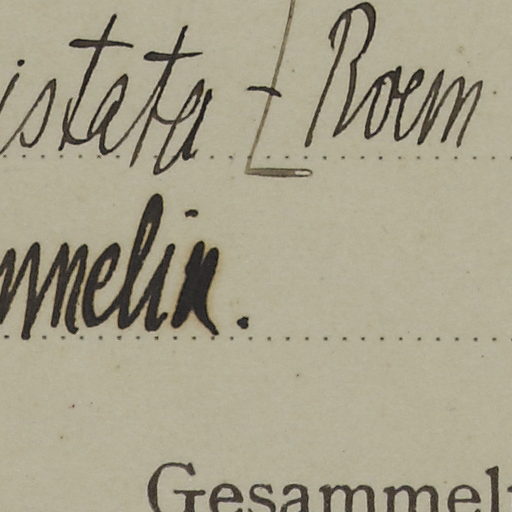 istata [ Roem
nmelin.
Gesammel